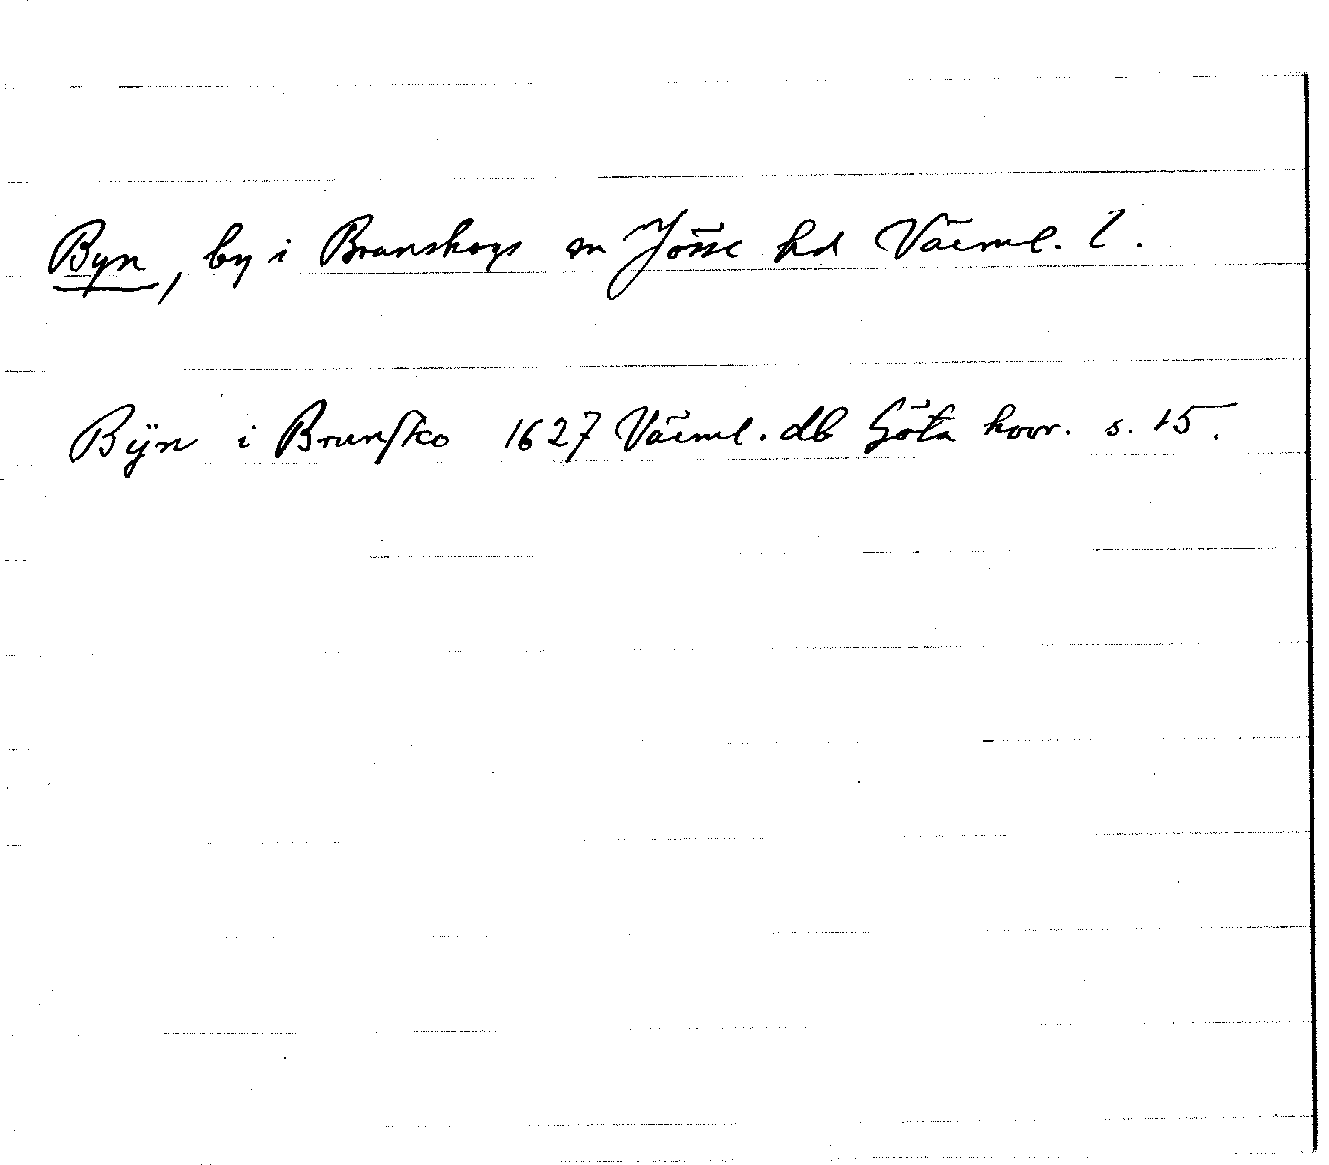 Byn, by i Brunskogs sn Jösse hd Värml. l.
Bÿn i Brunsko 1627 Värml. db Göta hovr. s. 15.